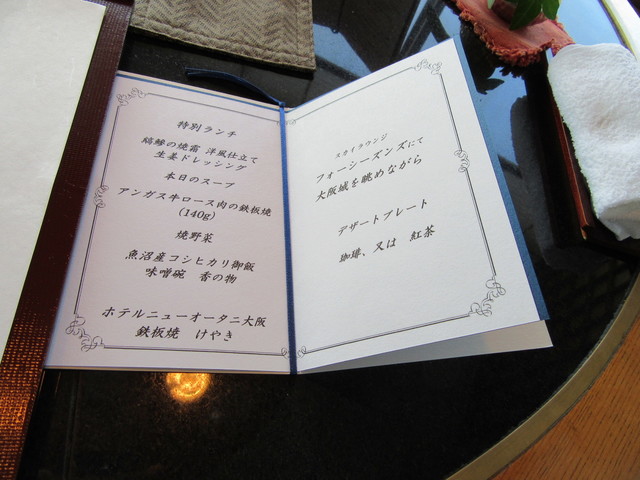 特別ランチ
縞鯵の焼霜 洋風仕立て
生姜ドレッシング
本日のスープ
アンガス牛ロース肉の鉄板焼
(140g)
焼野菜
魚沼産コシヒカリ御飯
味噌碗 香の物
ホテルニューオータニ大阪
鉄板焼 けやき
スカイラウンジ
フォーシーズンズにて
大阪城を眺めながら
デザートプレート
珈琲、又は 紅茶